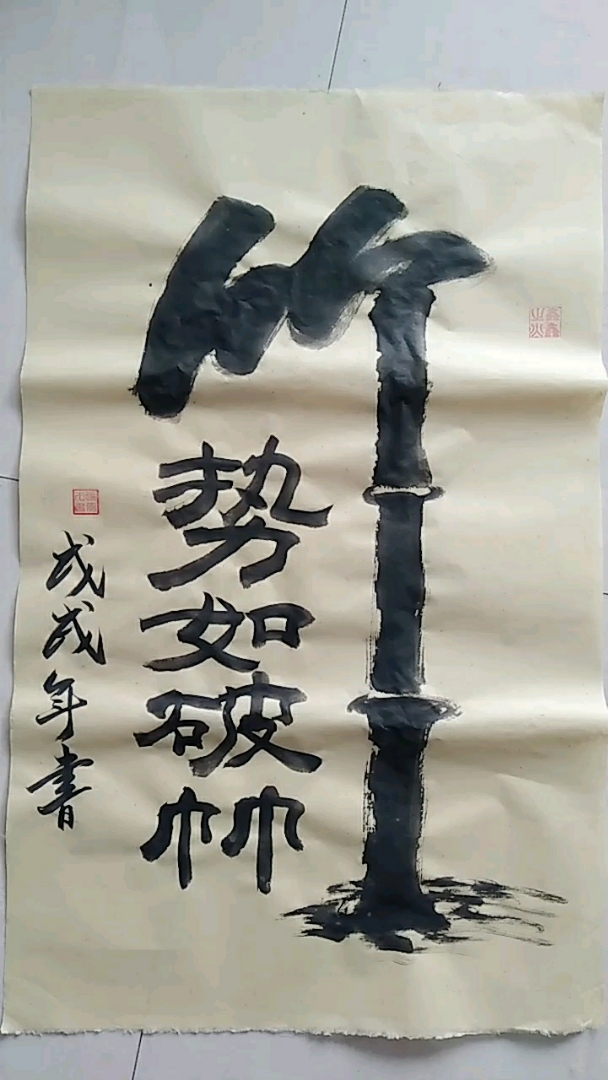 竹
势如破竹
戊戌年书